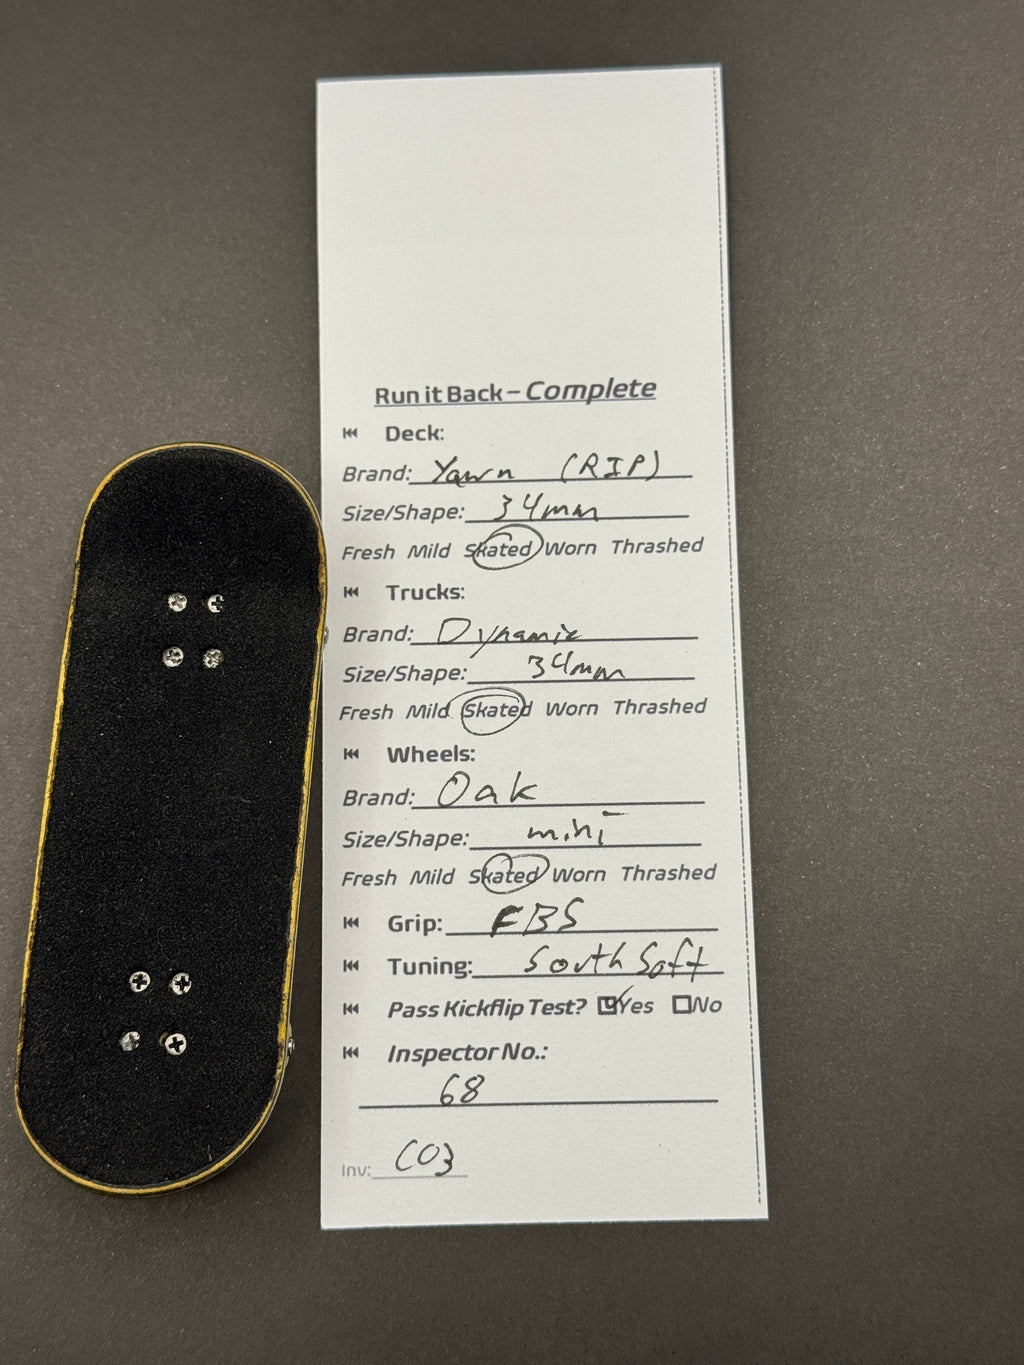 Run it Back – Complete
Deck:
Brand: Yawn (RIP)
Size/Shape: 34mm
Fresh Mild Skated Worn Thrashed
Trucks:
Brand: Dynamic
Size/Shape: 34mm
Fresh Mild Skated Worn Thrashed
Wheels:
Brand: Oak
Size/Shape: mini
Fresh Mild Skated Worn Thrashed
Grip: FBS
Tuning: South Soft
Pass Kickflip Test? Yes No
Inspector No.:
68
Inv: C03